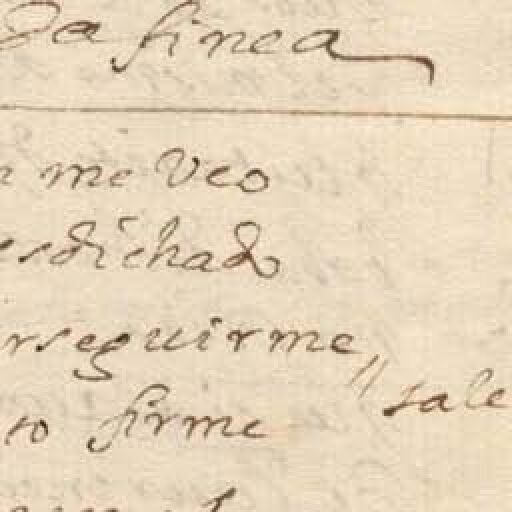 Da finea
me Veo
esdichado
rseguirme
sale
firme